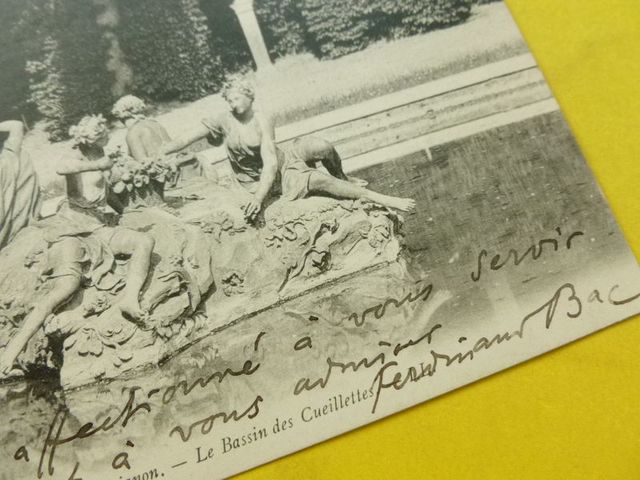 affectionné à vous servir
& à vous admirer Ferdinand Bac
non. — Le Bassin des Cueillettes